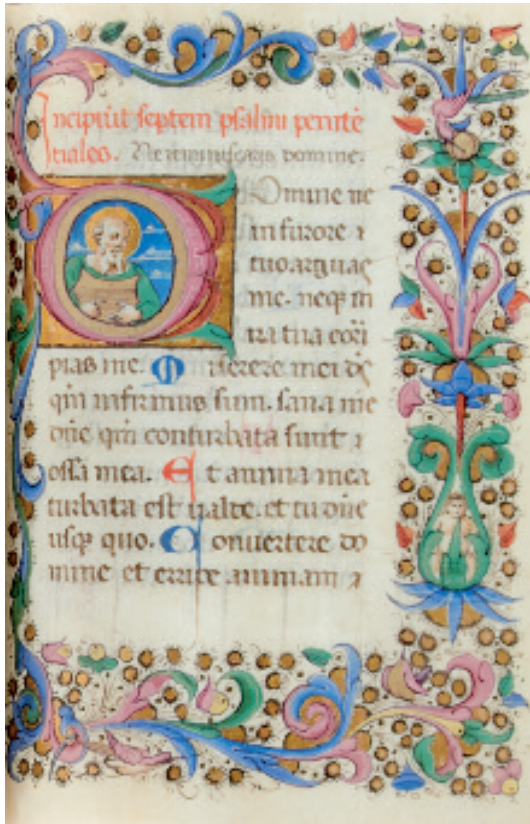 Incipiūt septem psalmi penitē
tiales. Ne reminiscaris domine.
Domine ne
in furore
tuo arguas
me. neq; in
ira tua cori
pias me. Miserere mei dс̄
qm̄ infirmus sum. sana me
dn̄e qm̄ conturbata sunt
ossa mea. Et anima mea
turbata est ualde. et tu dn̄e
usq; quo. Conuertere do
mine et erripe animam